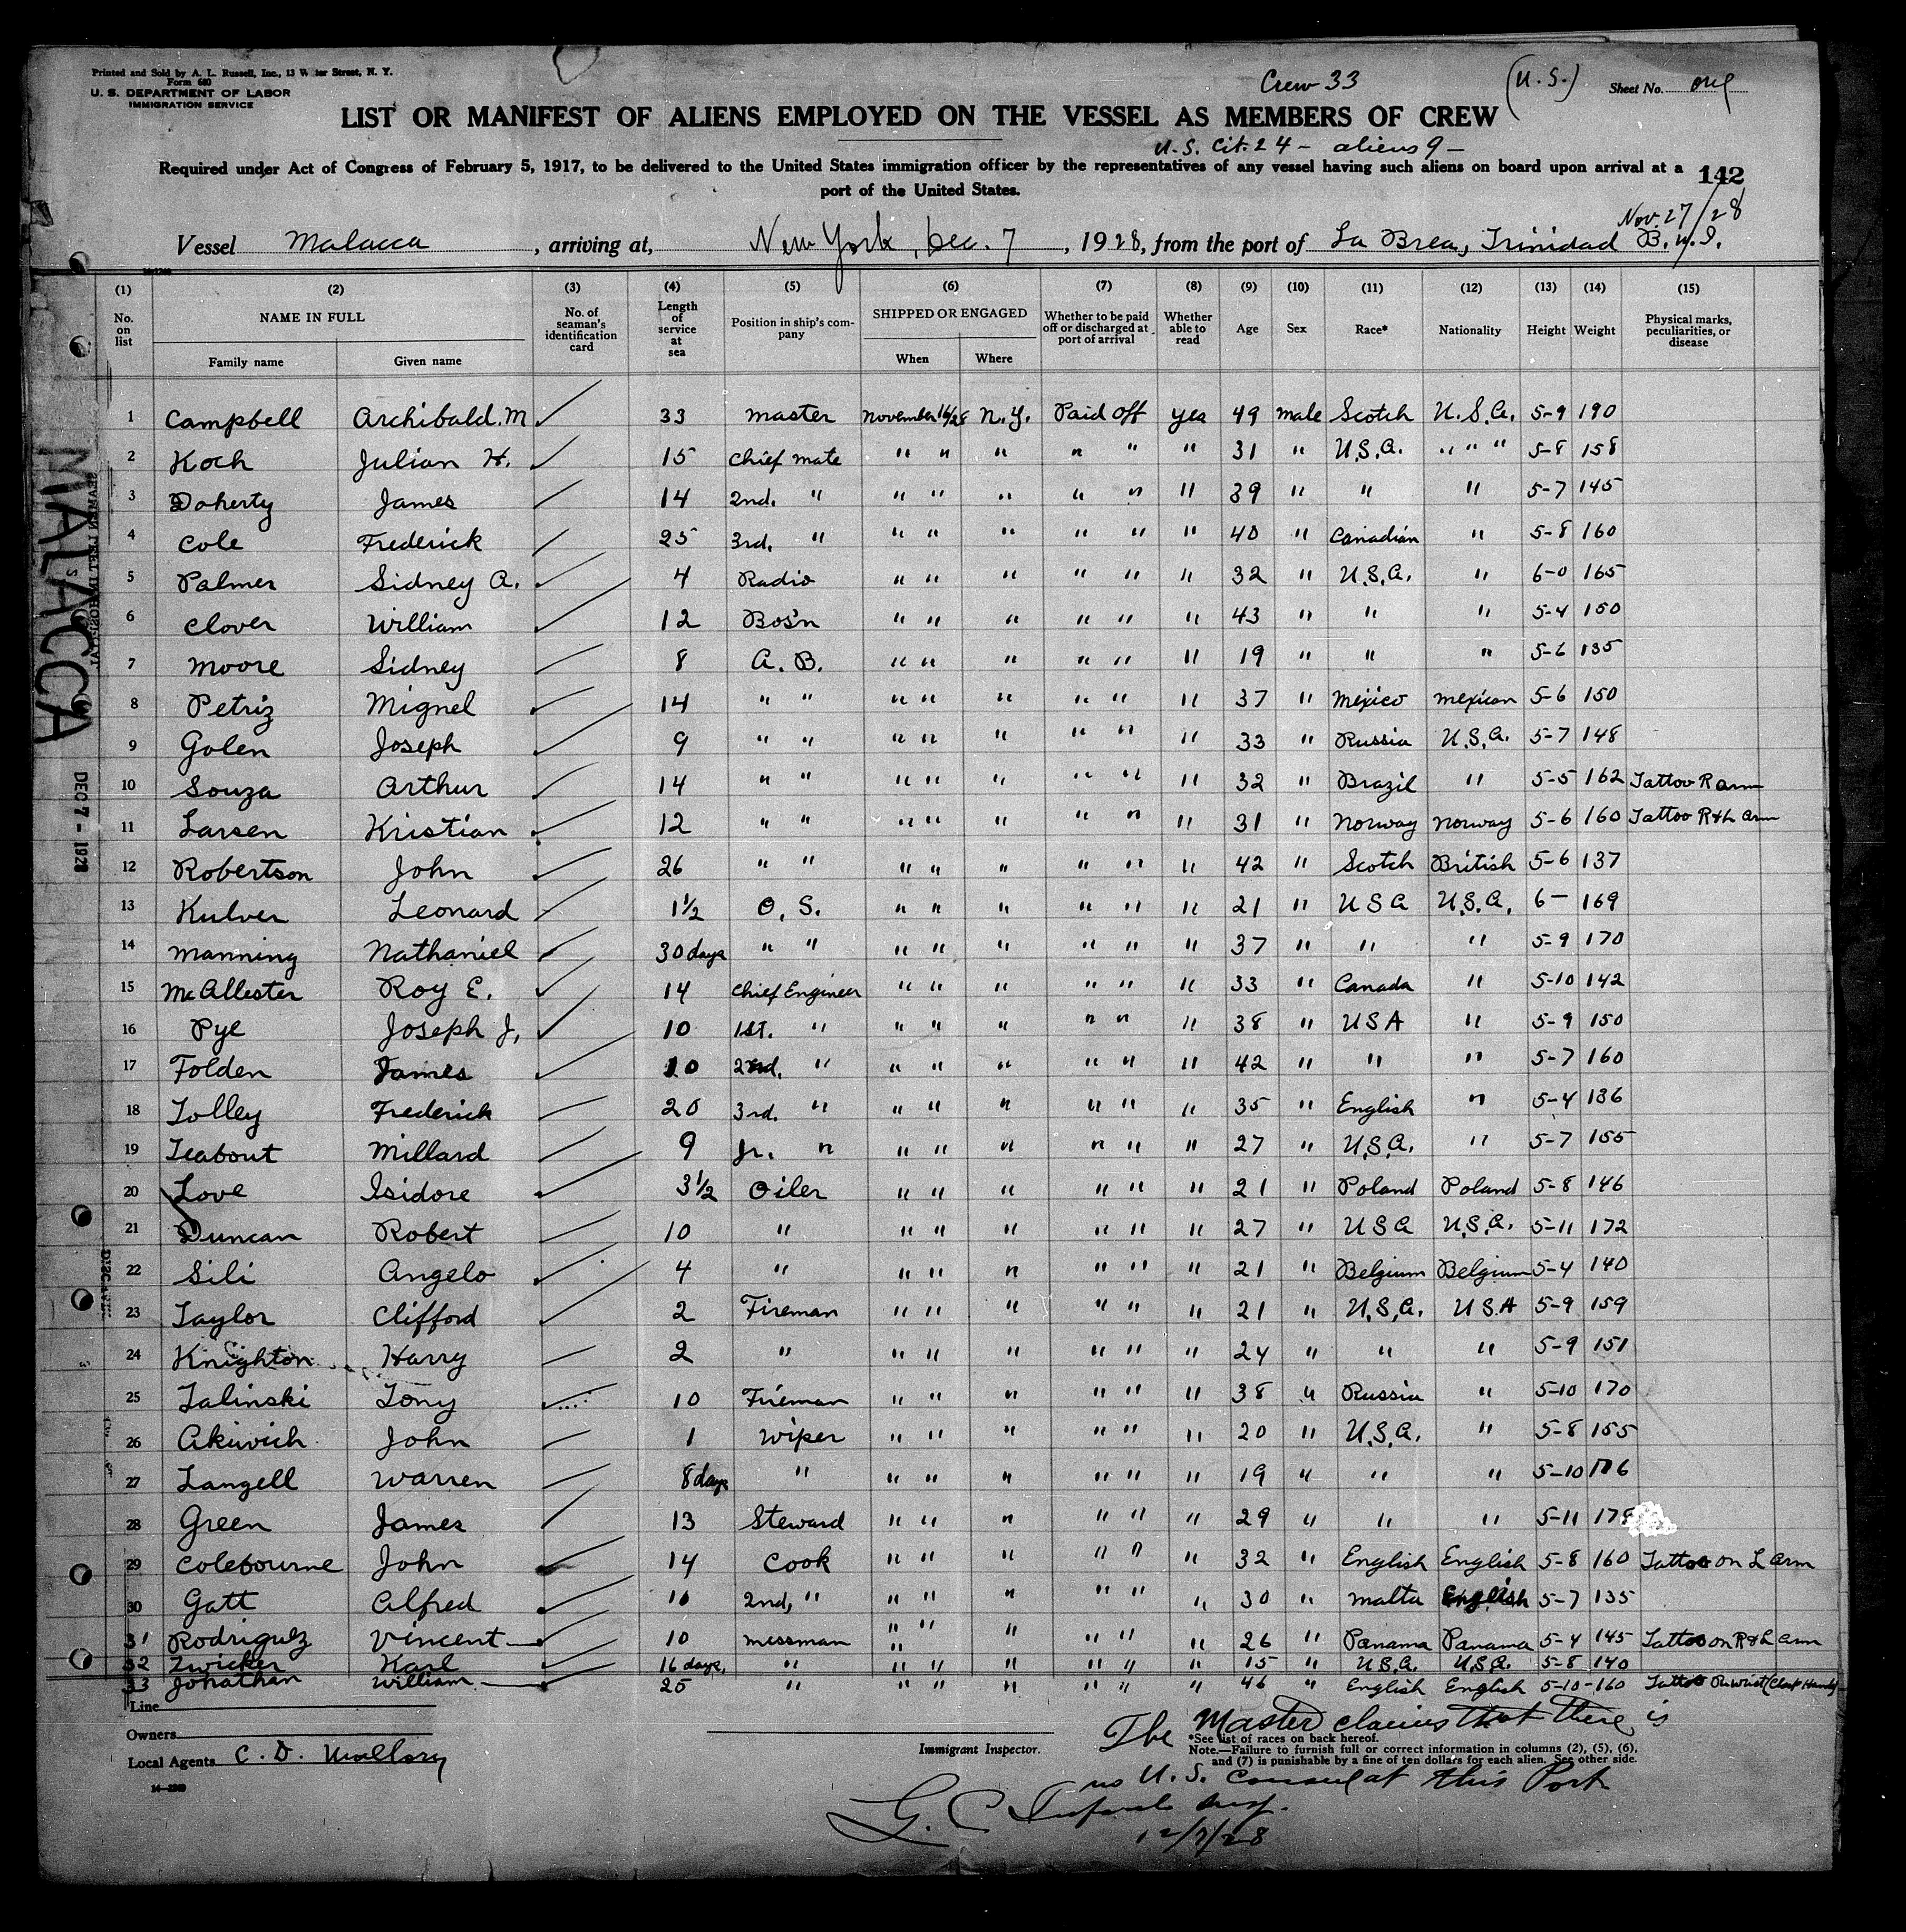 Printed and Sold by A. L. Russell, Inc., 13 Water Street, N. Y.
Form 680
U. S. DEPARTMENT OF LABOR
IMMIGRATION SERVICE
Crew 33
(U. S.)
Sheet No. one
LIST OR MANIFEST OF ALIENS EMPLOYED ON THE VESSEL AS MEMBERS OF CREW
U. S. Cit. 24 - aliens 9 -
Required under Act of Congress of February 5, 1917, to be delivered to the United States immigration officer by the representatives of any vessel having such aliens on board upon arrival at a
port of the United States.
142
Nov. 27/28
Vessel Malacca, arriving at, New York, Dec. 7, 1928, from the port of La Brea, Trinidad B.W.I.
(1) (2) (3) (4) (5) (6) (7) (8) (9) (10) (11) (12) (13) (14) (15)
No. on list NAME IN FULL Family name Given name No. of seaman's identification card Length of service at sea Position in ship's company SHIPPED OR ENGAGED When Where Whether to be paid off or discharged at port of arrival Whether able to read Age Sex Race* Nationality Height Weight Physical marks, peculiarities, or disease
1 Campbell Archibald. M 33 Master November 16/28 N.Y. Paid off yes 49 male Scotch U.S.A. 5-9 190
2 Koch Julian H. 15 Chief mate " " " " " " 31 " U.S.A. " " " 5-8 158
3 Doherty James 14 2nd. " " " " " " " 39 " " " 5-7 145
4 Cole Frederick 25 3rd. " " " " " " " 40 " Canadian " 5-8 160
5 Palmer Sidney A. 4 Radio " " " " " " 32 " U.S.A. " 6-0 165
6 Clover William 12 Bos'n " " " " " " 43 " " " 5-4 150
7 Moore Sidney 8 A. B. " " " " " " 19 " " " 5-6 135
8 Petriz Mignel 14 " " " " " " " " 37 " Mexico Mexican 5-6 150
9 Golen Joseph 9 " " " " " " " " 33 " Russia U.S.A. 5-7 148
10 Souza Arthur 14 " " " " " " " " 32 " Brazil " 5-5 162 Tattoo R arm
11 Larsen Kristian 12 " " " " " " " " 31 " Norway Norway 5-6 160 Tattoo R&L arm
12 Robertson John 26 " " " " " " " " 42 " Scotch British 5-6 137
13 Kulver Leonard 1½ O. S. " " " " " " 21 " USA U.S.A. 6- 169
14 Manning Nathaniel 30 days " " " " " " " " 37 " " " 5-9 170
15 McAllester Roy E. 14 Chief Engineer " " " " " " 33 " Canada " 5-10 142
16 Pye Joseph J. 10 1st. " " " " " " " 38 " USA " 5-9 150
17 Folden James 10 2nd. " " " " " " " 42 " " " 5-7 160
18 Tolley Frederick 20 3rd. " " " " " " " 35 " English " 5-4 136
19 Teabout Millard 9 Jr. " " " " " " " 27 " U.S.A. " 5-7 155
20 Love Isidore 3½ Oiler " " " " " " 21 " Poland Poland 5-8 146
21 Duncan Robert 10 " " " " " " " 27 " USA U.S.A. 5-11 172
22 Sili Angelo 4 " " " " " " " 21 " Belgium Belgium 5-4 140
23 Taylor Clifford 2 Fireman " " " " " " 21 " U.S.A. USA 5-9 159
24 Knighton Harry 2 " " " " " " " 24 " " " 5-9 151
25 Talinski Tony 10 Fireman " " " " " " 38 " Russia " 5-10 170
26 Akiwich John 1 Wiper " " " " " " 20 " U.S.A. " 5-8 155
27 Langell Warren 8 days " " " " " " " 19 " " " 5-10 176
28 Green James 13 Steward " " " " " " 29 " " " 5-11
29 Colebourne John 14 Cook " " " " " " 32 " English English 5-8 160 Tattoo on L arm
30 Gatt Alfred 2nd, " " " " " " " 30 " Malta English 5-7 135
31 Rodriguez Vincent 10 messman " " " " " " 26 " Panama Panama 5-4 145 Tattoo on R&L arm
32 Zwicker Karl 16 days, " " " " " " " 15 " U.S.A. U.S.A. 5-8 140
33 Jonathan William 25 " " " " " " " 46 " English English 5-10-160 Tattoo R. wrist
Line
Owners
Local Agents C. D. Mallory
14-1240
Immigrant Inspector.
The Master claims that there is
*See list of races on back hereof.
Note.—Failure to furnish full or correct information in columns (2), (5), (6),
and (7) is punishable by a fine of ten dollars for each alien. See other side.
no U. S. Consul at this Port
G. C. Insp.
12/7/28
MALACCA
DEC 7 - 1928